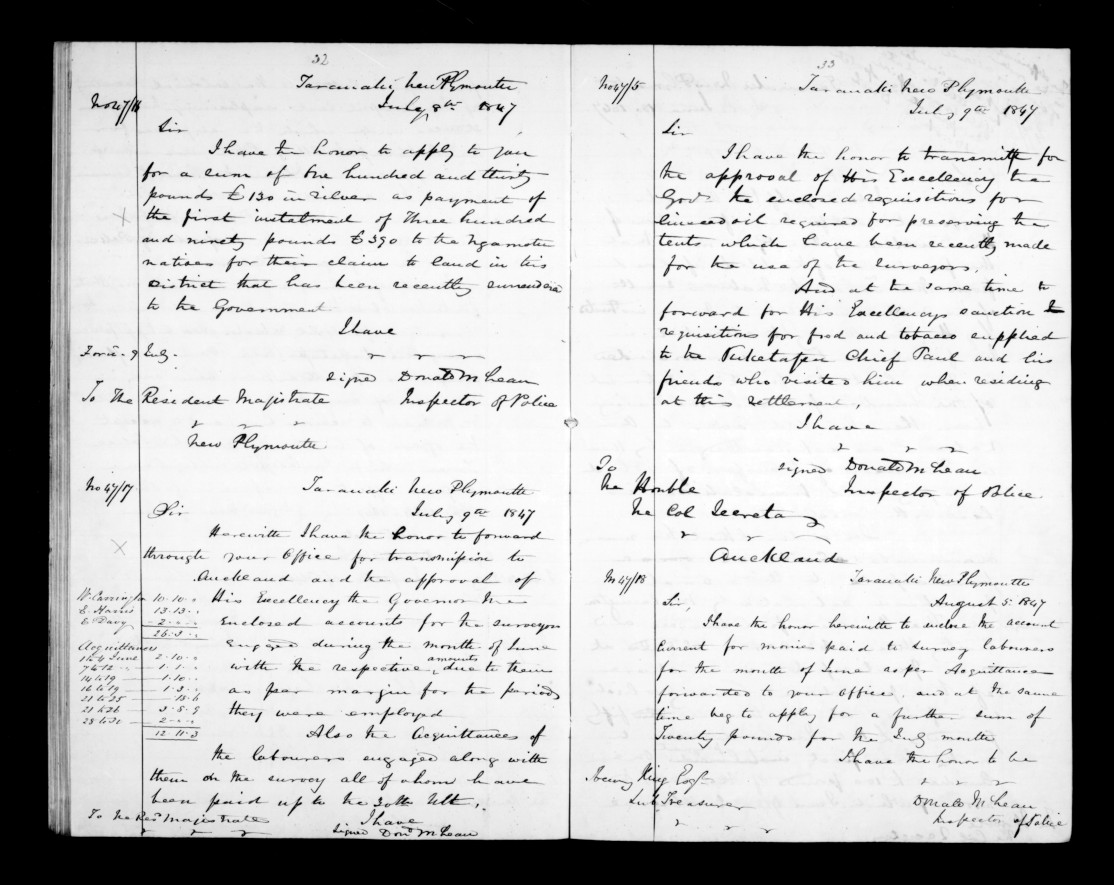 32
Taranaki, New Plymouth
July 8th 1847
No 47/16
Sir
I have the honor to apply to you
for a sum of One hundred and thirty
pounds £130 in silver as payment of
the first instalment of Three hundred
and ninety pounds £390 to the Ngamotu
natives for their claim to land in this
District that has been recently surrendered
to the Government.
I have
9 July.
signed Donald McLean
To The Resident Magistrate Inspector of Police
New Plymouth
No 47/17
Taranaki New Plymouth
July 9th 1847
Sir
Herewith I have the honor to forward
through your Office for transmission to
Auckland and the approval of
His Excellency the Governor the
Enclosed accounts for the surveyors
Engaged during the month of June
with the respective amounts due to them
as per margin for the periods
they were employed
W. Carrington 10.10..
E. Harris 13.13..
2..
26.3..
Acquittances
1 to 4 June 2.10..
7 to 12 1.1..
14 to 19 1.10..
16 to 19 1.3..
21 to 25 .18.6
21 to 26 3.8.9
28 to 30 2...
12.11.3
Also the Acquittances of
the labourers engaged along with
them on the survey all of whom have
been paid up to the 30th Ult.
I have
To the Res. Magistrate
signed Dond McLean
33
No 47/5
Taranaki New Plymouth
July 9th 1847
Sir
I have the honor to transmit for
the approval of His Excellency the
Govr the enclosed requisitions for
linseed oil required for preserving the
tents which have been recently made
for the use of the Surveyors.
And at the same time to
forward for His Excellencys sanction
requisitions for food and tobacco supplied
to the Puketapu Chief Paul and his
friends who visited him when residing
at this settlement.
I have
signed Donald McLean
Inspector of Police
To
The Honble
The Col Secretary
Auckland
No 47/18
Taranaki New Plymouth
August 5. 1847
Sir
I have the honor herewith to enclose the account
Current for monies paid to survey labourers
for the month of June as per Acquittances
forwarded to your Office, and at the same
time beg to apply for a further sum of
Twenty pounds for the July month
I have the honor to be
Henry King Esqr
Sub Treasurer
Donald McLean
Inspector of Police